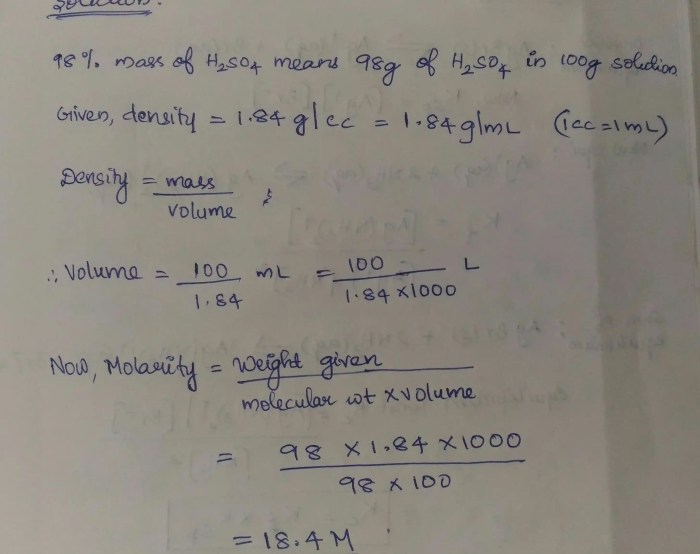 Solution:
98% mass of H₂SO₄ means 98g of H₂SO₄ in 100g solution
Given, density = 1.84 g/cc = 1.84 g/mL (1cc=1mL)
Density = mass
volume
∴ Volume = 100 mL = 100 L
1.84 1.84 ×1000
Now, Molarity = Weight given
molecular wt × volume
= 98 × 1.84 ×1000
98 × 100
= 18.4 M